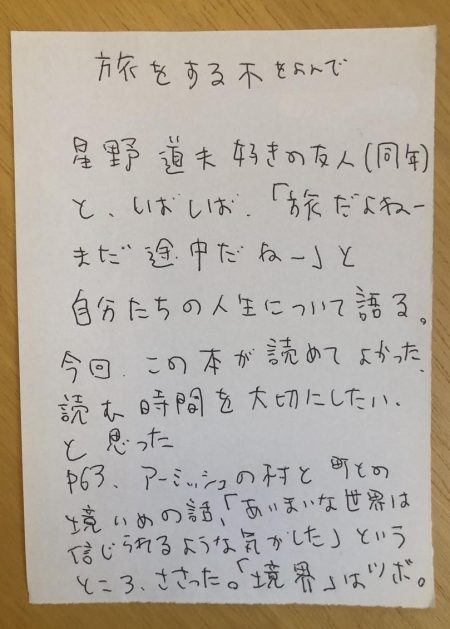 旅をする木をよんで
星野道夫好きの友人(同年)
と、しばしば、「旅だよねー
まだ途中だねー」と
自分たちの人生について語る。
今回、この本が読めてよかった、
読む時間を大切にしたい、
と思った
P63、アーミッシュの村と町との
境いめの話、「あいまいな世界は
信じられるような気がした」という
ところ、ささった。「境界」はツボ。